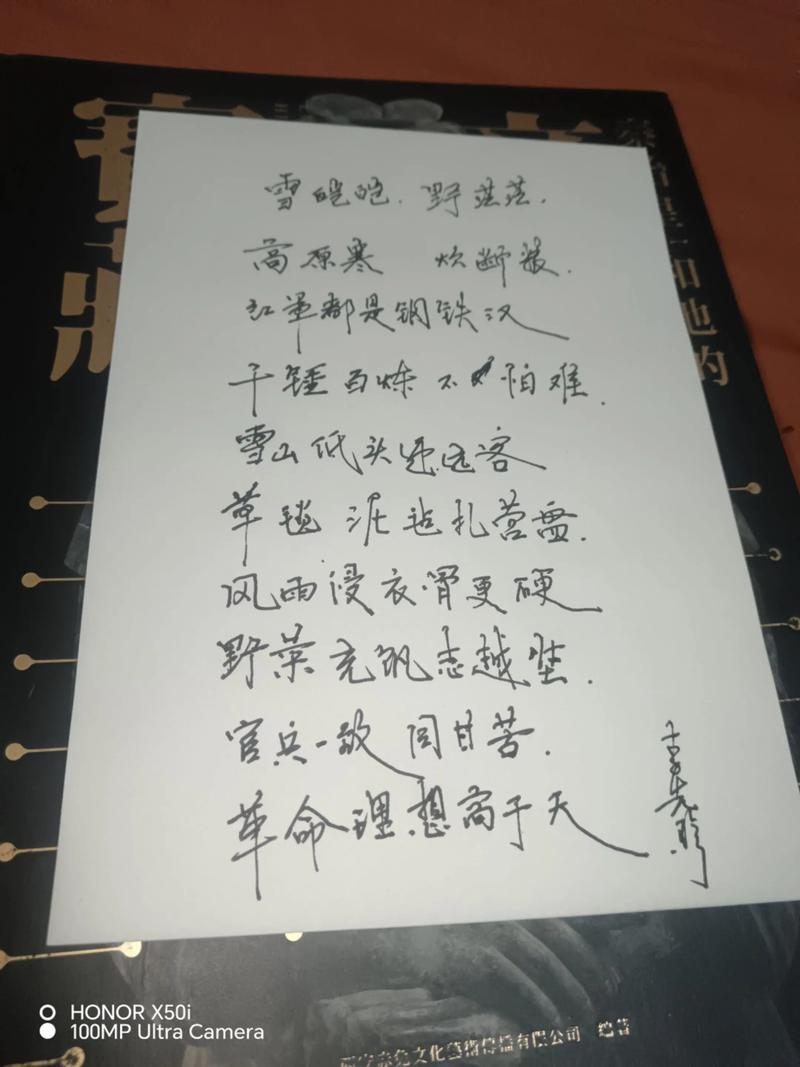 雪皑皑.野茫茫.
高原寒 炊断粮.
红军都是钢铁汉
千锤百炼不怕难.
雪山低头迎远客
草毯泥毡扎营盘.
风雨侵衣骨更硬
野菜充饥志越坚.
官兵一致同甘苦.
革命理想高于天
秦始皇和他的
文化藝術傳播有限公司 編著
HONOR X50i
100MP Ultra Camera